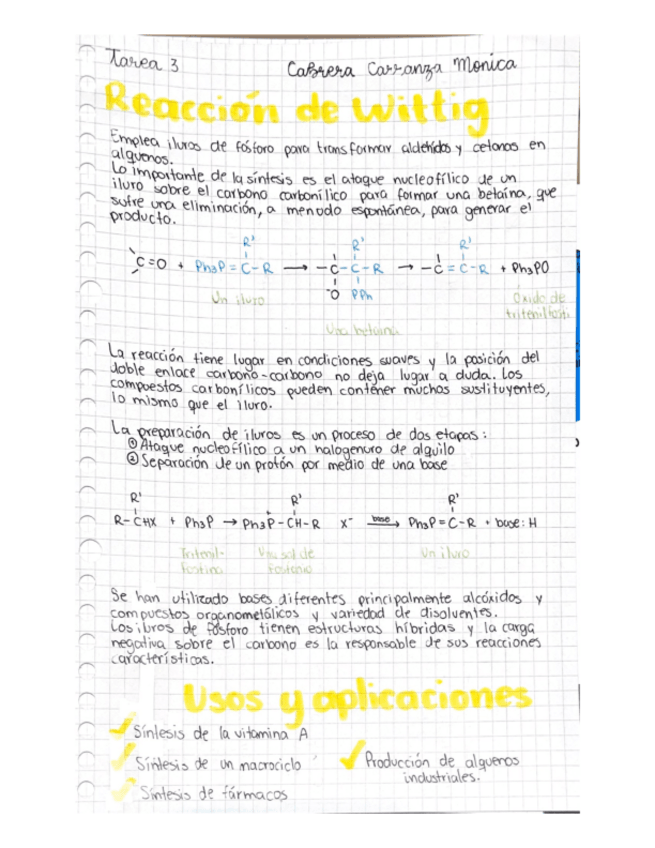 Tarea 3
Cabrera Carranza Monica
Reacción de Wittig
Emplea iluros de fósforo para transformar aldehídos y cetonas en
alquenos.
Lo importante de la síntesis es el ataque nucleofílico de un
iluro sobre el carbono carbonílico para formar una betaína, que
sufre una eliminación, a menudo espontánea, para generar el
producto.
R' R' R'
C=O + Ph3P=C-R → -C-C-R → -C=C-R + Ph3PO
-O PPh
Un iluro
Una betaína
Óxido de
trifenilfosfi
La reacción tiene lugar en condiciones suaves y la posición del
doble enlace carbono-carbono no deja lugar a duda. Los
compuestos carbonílicos pueden contener muchos sustituyentes,
lo mismo que el iluro.
La preparación de iluros es un proceso de dos etapas:
① Ataque nucleofílico a un halogenuro de alquilo
② Separación de un protón por medio de una base
R' R' R'
R-CHX + Ph3P → Ph3P+-CH-R X- base→ Ph3P=C-R + base:H
Trifenil-
fosfina
Una sal de
fosfonio
Un iluro
Se han utilizado bases diferentes principalmente alcóxidos y
compuestos organometálicos y variedad de disolventes.
Los iluros de fósforo tienen estructuras híbridas y la carga
negativa sobre el carbono es la responsable de sus reacciones
características.
Usos y aplicaciones
Síntesis de la vitamina A
Síntesis de un macrociclo
Síntesis de fármacos
Producción de alquenos
industriales.